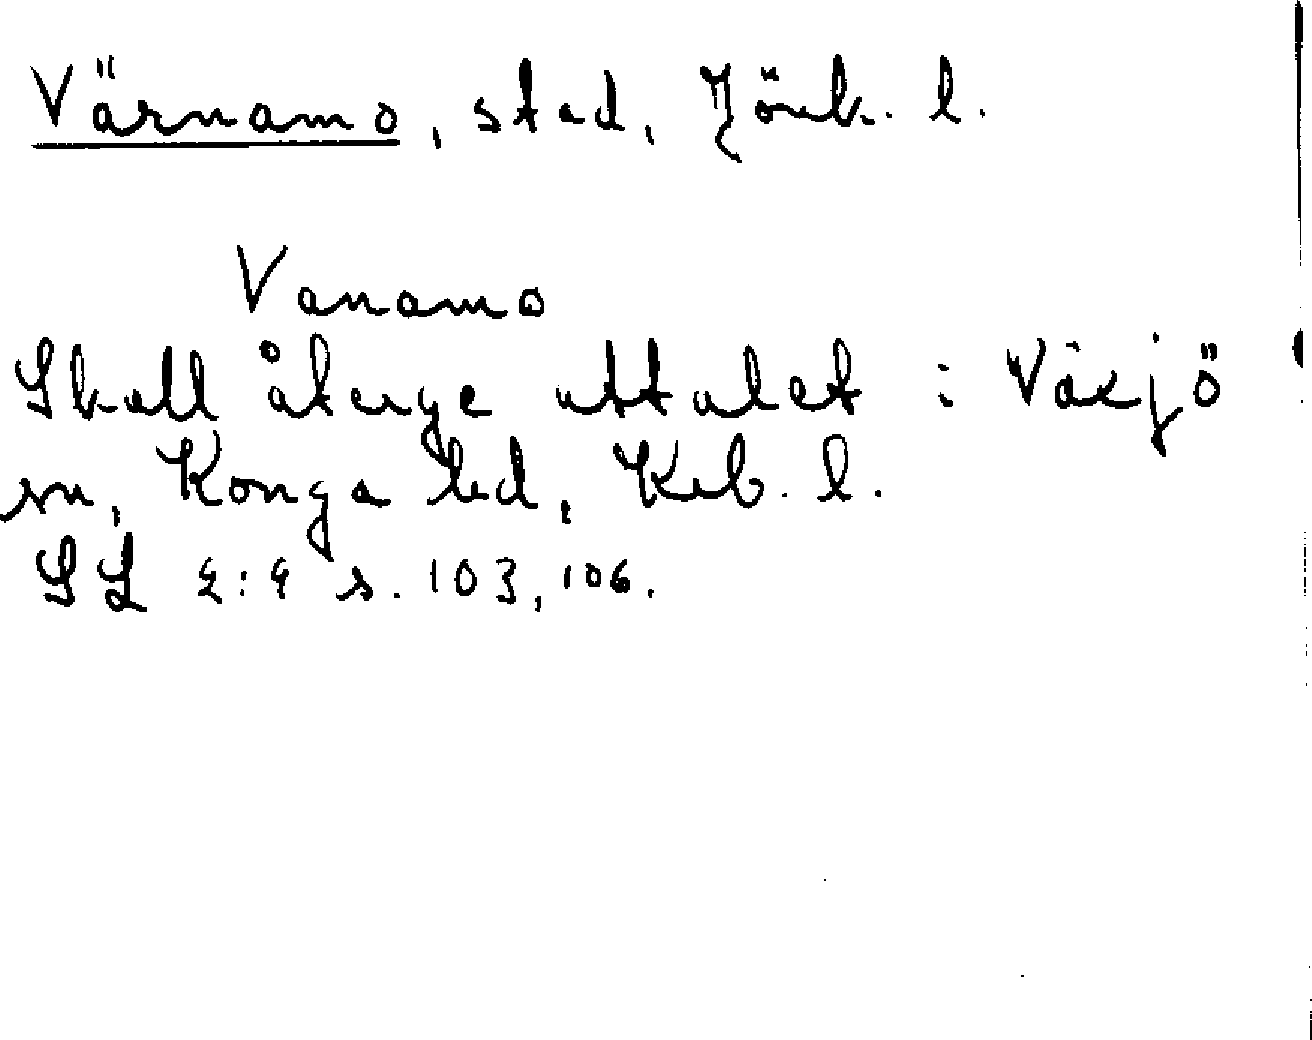 Värnamo, stad, Jönk. l.
Vanamo
Skall återge uttalet i Växjö
sn, Konga hd, Krb. l.
SL 2:9 s. 103, 106.